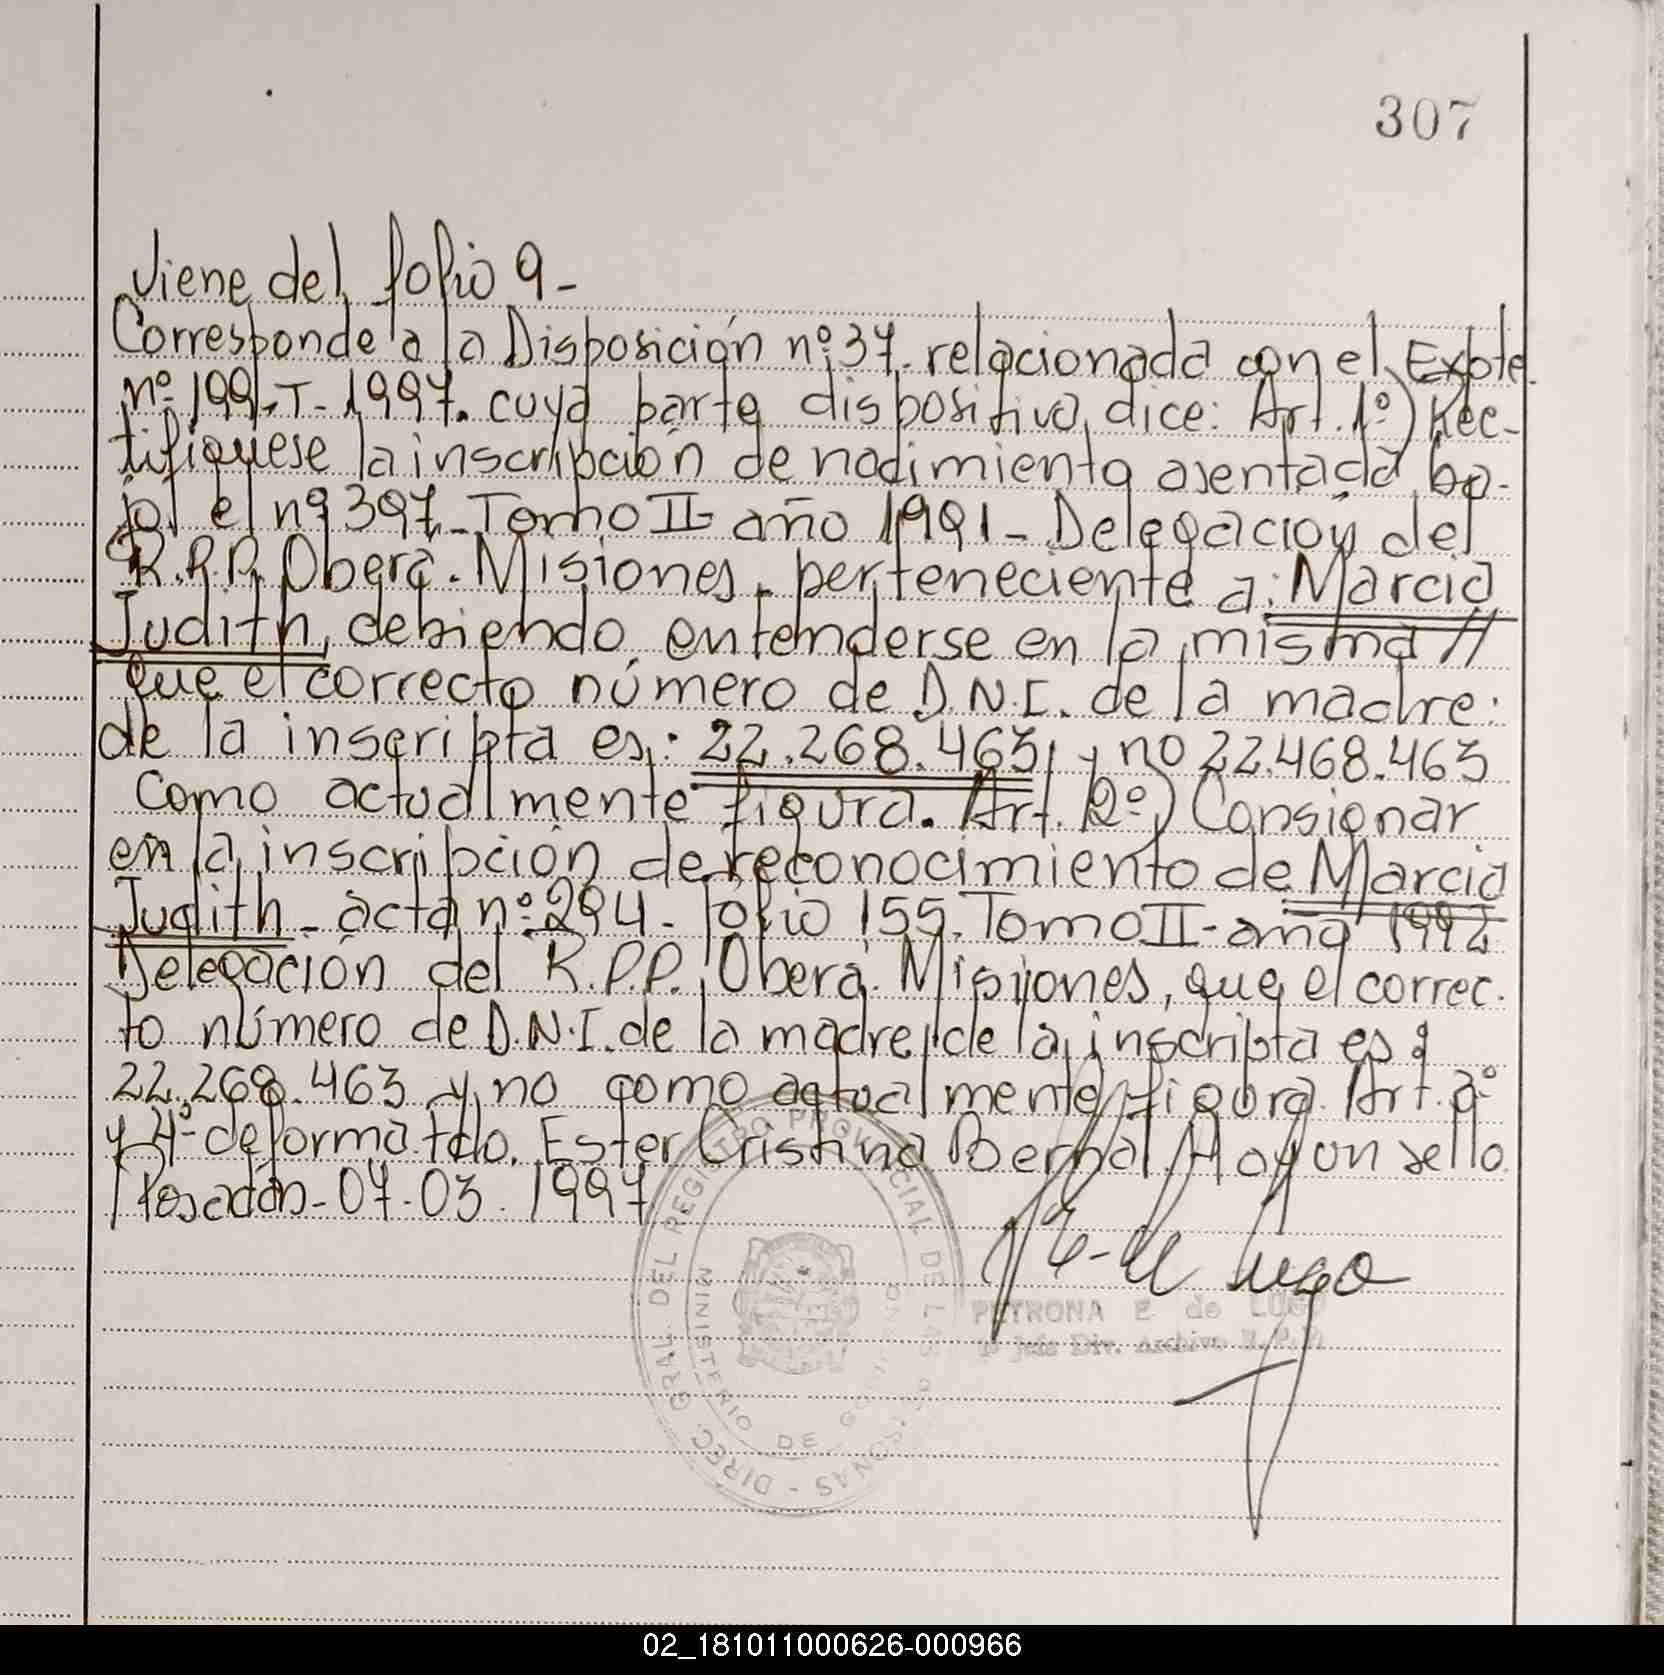 307
Viene del folio 9-
Corresponde a la Disposición nº 37. relacionada con el Expte.
nº 199-T-1997. cuya parte dispositiva dice: Art. 1º) Rec-
tifíquese la inscripción de nacimiento asentada ba-
jo el nº 397. Tomo II- año 1991- Delegación del
R.P.P. Oberá. Misiones. perteneciente a: Marcia
Judith, debiendo entenderse en la misma //
que el correcto número de D.N.I. de la madre
de la inscripta es: 22.268.463, y no 22.468.463
como actualmente figura. Art. 2º) Consignar
en la inscripción de reconocimiento de Marcia
Judith- acta nº 294- folio 155. Tomo II- año 1992
Delegación del R.P.P. Oberá. Misiones, que el correc.
to número de D.N.I. de la madre de la inscripta es:
22.268.463 y no como actualmente figura. Art. 3º
y 4º de forma. fdo. Ester Cristina Bernal. Hay un sello
Posadas- 07-03. 1997.
PETRONA E. de LUGO
Div. Archivo R.P.P.
DIREC. GRAL. DEL REGISTRO PROVINCIAL DE LAS PERSONAS -
MINISTERIO DE
02_181011000626-000966